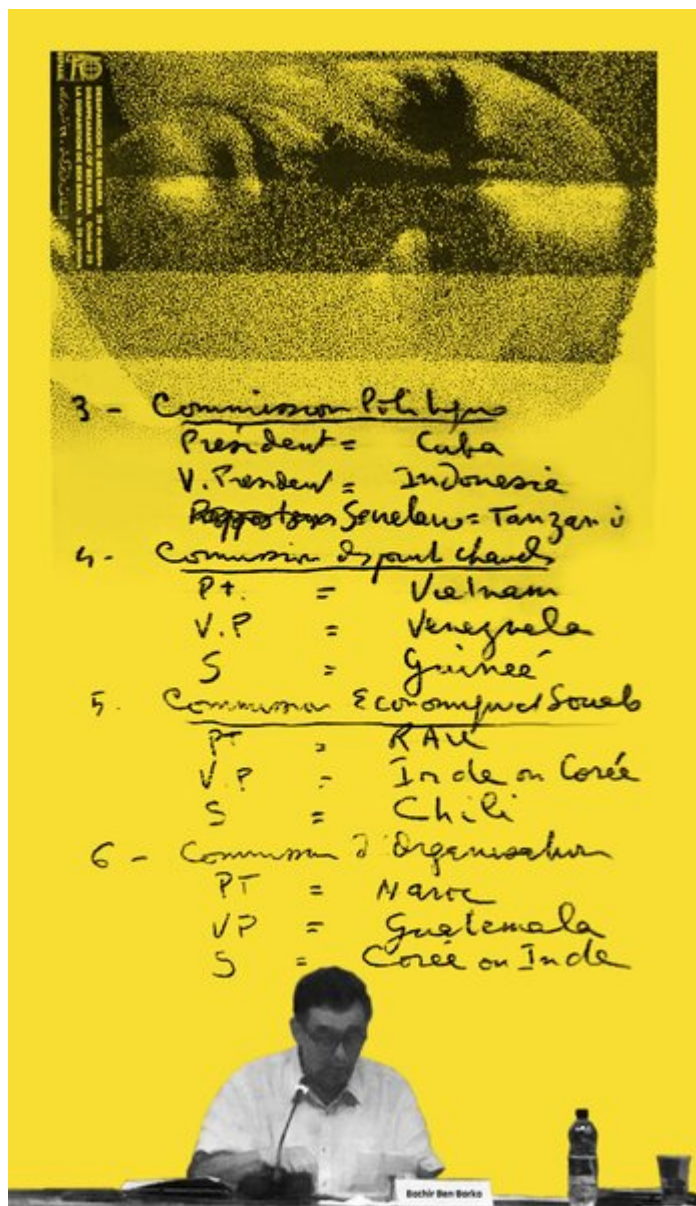 3 - Commission Politique
Président = Cuba
V. President = Indonesie
= Tanzanie
4 - Commission des points chauds
Pt. = Vietnam
V.P = Venezuela
S = Guineé
5. Commission Economique et Sociale
PT = RAU
V.P = Inde ou Corée
S = Chili
6 - Commission d'Organisation
PT = Maroc
VP = Guatemala
S = Corée ou Inde
Bachir Ben Barka